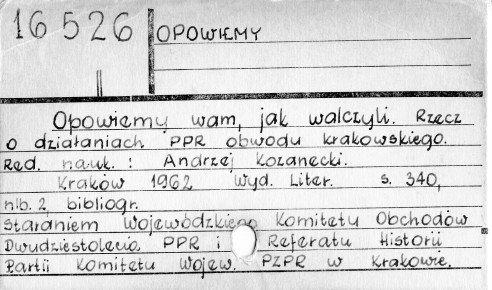 16 526
OPOWIEMY
Opowiemy wam, jak walczyli. Rzecz
o działaniach PPR obwodu krakowskiego.
Red. nauk. : Andrzej Kozanecki.
Kraków 1962 Wyd. Liter. s. 340,
nlb. 2, bibliogr.
Staraniem Wojewódzkiego Komitetu Obchodów
Dwudziestolecia PPR i Referatu Historii
Partii Komitetu Wojew. PZPR w Krakowie.